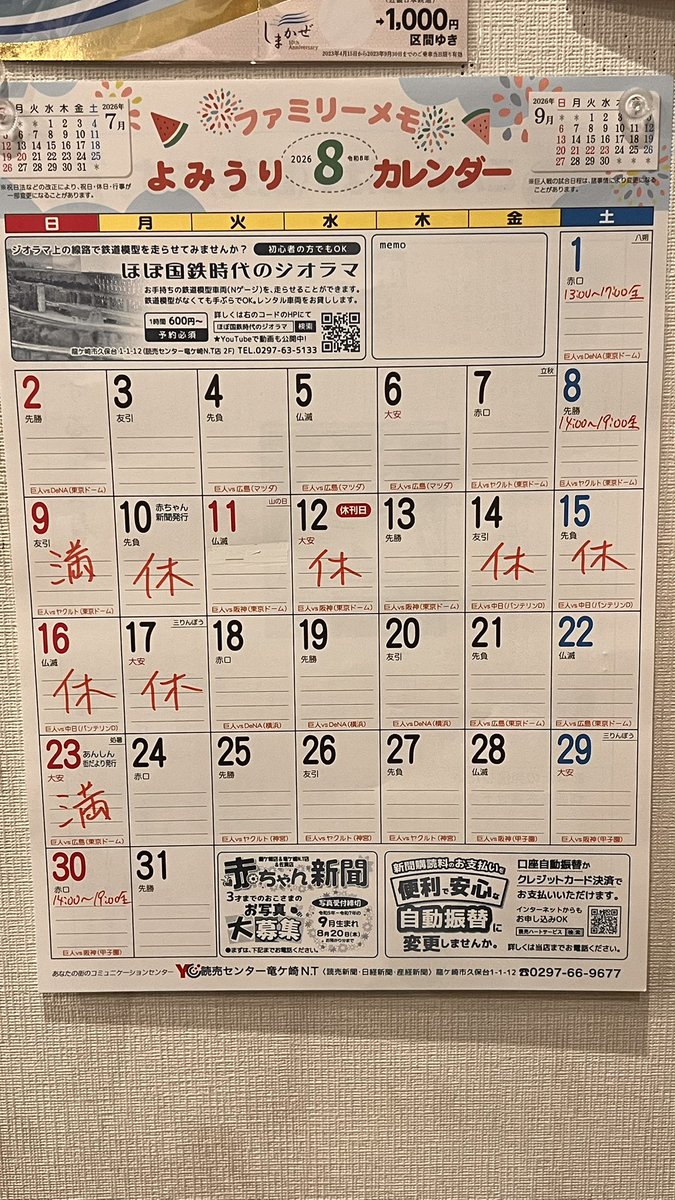 しまかぜ
10th Anniversary
→1,000円
区間ゆき
2023年4月15日から2023年9月30日までのご乗車当日限り有効
2026年 7月
日 月 火 水 木 金 土
* * 1 2 3 4
5 6 7 8 9 10 11
12 13 14 15 16 17 18
19 20 21 22 23 24 25
26 27 28 29 30 31 *
※祝日法などの改正により、祝日・休日・行事が一部変更になることがあります。
ファミリーメモ
よみうり 2026 8 令和8年 カレンダー
2026年 9月
日 月 火 水 木 金 土
* * 1 2 3 4 5
6 7 8 9 10 11 12
13 14 15 16 17 18 19
20 21 22 23 24 25 26
27 28 29 30 * * *
※巨人戦の試合日程は、諸事情により変更になることがあります。
日 月 火 水 木 金 土
ジオラマ上の線路で鉄道模型を走らせてみませんか? 初心者の方でもOK
ほぼ国鉄時代のジオラマ
お手持ちの鉄道模型車両(Nゲージ)を、走らせることができます。
鉄道模型がなくても手ぶらでOK。レンタル車両をお貸しします。
1時間 600円~
予約必須
詳しくは右のコードのHPにて
ほぼ国鉄時代のジオラマ 検索
★YouTubeで動画も公開中!
龍ケ崎市久保台1-1-12(読売センター竜ケ崎N.T店 2F) TEL.0297-63-5133
memo
1 八朔
赤口
13:00~17:00全
巨人vsDeNA(東京ドーム)
2 先勝
巨人vsDeNA(東京ドーム)
3 友引
4 先負
巨人vs広島(マツダ)
5 仏滅
巨人vs広島(マツダ)
6 大安
巨人vs広島(マツダ)
7 立秋
赤口
巨人vsヤクルト(東京ドーム)
8 先勝
14:00~19:00全
巨人vsヤクルト(東京ドーム)
9 友引
満
巨人vsヤクルト(東京ドーム)
10 赤ちゃん新聞発行
先負
休
11 山の日
仏滅
巨人vs阪神(東京ドーム)
12 休刊日
大安
休
巨人vs阪神(東京ドーム)
13 先勝
巨人vs阪神(東京ドーム)
14 友引
休
巨人vs中日(バンテリンD)
15 先負
休
巨人vs中日(バンテリンD)
16 仏滅
休
巨人vs中日(バンテリンD)
17 三りんぼう
大安
休
18 赤口
巨人vsDeNA(横浜)
19 先勝
巨人vsDeNA(横浜)
20 友引
巨人vsDeNA(横浜)
21 先負
巨人vs広島(東京ドーム)
22 仏滅
巨人vs広島(東京ドーム)
23 処暑
あんしん街だより発行
大安
満
巨人vs広島(東京ドーム)
24 赤口
25 先勝
巨人vsヤクルト(神宮)
26 友引
巨人vsヤクルト(神宮)
27 先負
巨人vsヤクルト(神宮)
28 仏滅
巨人vs阪神(甲子園)
29 三りんぼう
大安
巨人vs阪神(甲子園)
30 赤口
14:00~19:00全
巨人vs阪神(甲子園)
31 先勝
赤ちゃん新聞
3才までのおこさまの
お写真
大募集
写真受付締切
9月生まれ
8月20日(木)
●まずは、下記までお電話ください。
新聞購読料のお支払いを
便利で安心な
自動振替に
変更しませんか。
口座自動振替か
クレジットカード決済で
お支払いいただけます。
インターネットからも
お申し込みOK
読売ハートサービス 検索
詳しくは当店までお電話ください。
あなたの街のコミュニケーションセンター YC読売センター竜ケ崎N.T (読売新聞・日経新聞・産経新聞) 龍ケ崎市久保台1-1-12 ☎0297-66-9677